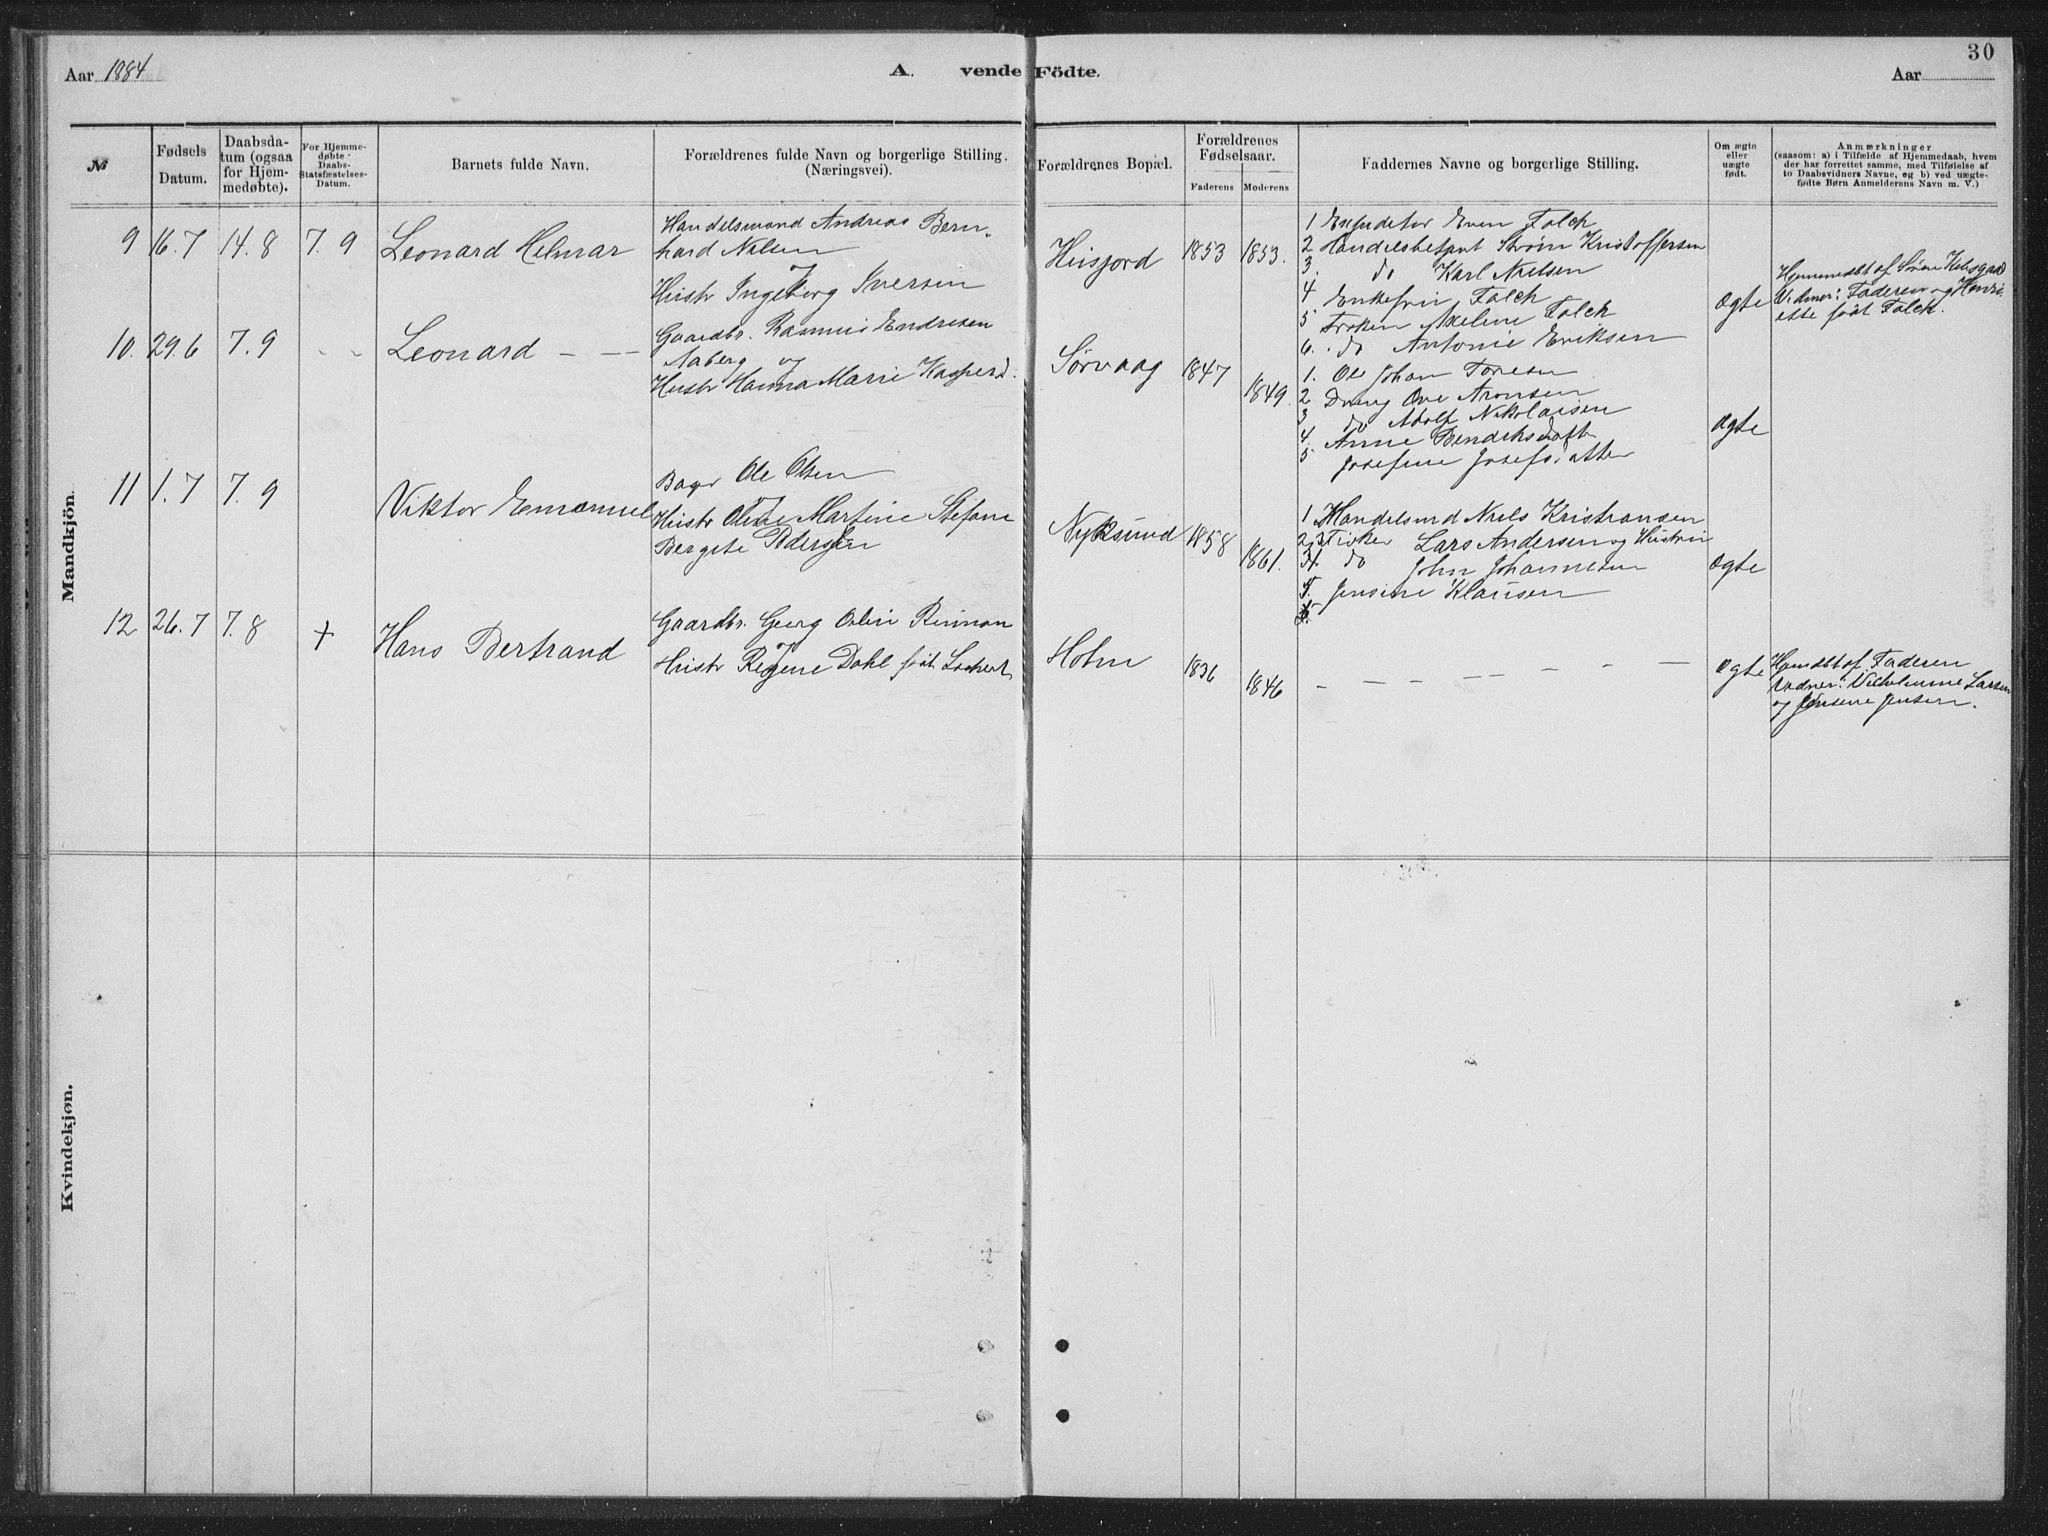 30
Aar 1884
A. vende Födte.
Aar
№
Fødsels Datum.
Daabsdatum (ogsaa for Hjemmedøbte).
For Hjemmedøbte Daabs-Statsfæstelses-Datum.
Barnets fulde Navn.
Forældrenes fulde Navn og borgerlige Stilling. (Næringsvei).
Forældrenes Bopæl.
Forældrenes Fødselsaar.
Faderens
Moderens
Faddernes Navne og borgerlige Stilling.
Om ægte eller uægte født.
Anmærkninger
(saasom: a) i Tilfælde af Hjemmedaab, hvem
der har forrettet samme, med Tilføielse af
to Daabsvidners Navne, og b) ved uægte-
fødte Børn Anmelderens Navn m. V.)
Mandkjön.
9 16.7 14.8 7.9 Leonard Helmar
Handelsmand Andreas Bern-
hard Nilsen
og
Hustr Ingeborg Iversen
Husfjord 1853 1853.
1 Expeditør Even Falch
2 Handelsbetjent Strøm Kristoffersen
3. do Karl Nielsen
4 Enkefru Falch
5 Frøken Axeline Falch
6. do Antonie Eriksen
Ægte
Hjemmedbt af Søren
Vidner: Faderen og Henri-
ette født Falch.
10. 29.6 7.9 - - Leonard - -
Gaardbr. Rasmus Endresen
Aaberg og
Hustr Hanna Marie Kaspersd.
Sørvaag 1847 1849.
1. Ole Johan Toresen
2 Dreng Ove Aronsen
3 do Adolf Nikolaisen
4. Anne Bendiksdatt
5 Josefine Josefsdatter
Ægte
11 1.7 7.9 Viktor Emanuel
Bager Ole Olsen
og
Hustr Oline Martine Stefane
Bergete Pedersen
Nyksund 1858 1861.
1 Handelsmd Niels Kristiansen
2,3 Fisker Lars Andersen og Hustru
4. do John Johannesen
5. Jensine Klausen
Ægte
12 26.7 7.8 + Hans Bertrand
Gaardbr. Georg Rinnan
og
Hustr Regine Dahl født Lockert
Holm 1836 1846
- - - - - - - -
Ægte
Hjmdbt af Faderen
Vidner: Vilhelmine Larsen
og Jensine Jensen.
Kvindekjøn.